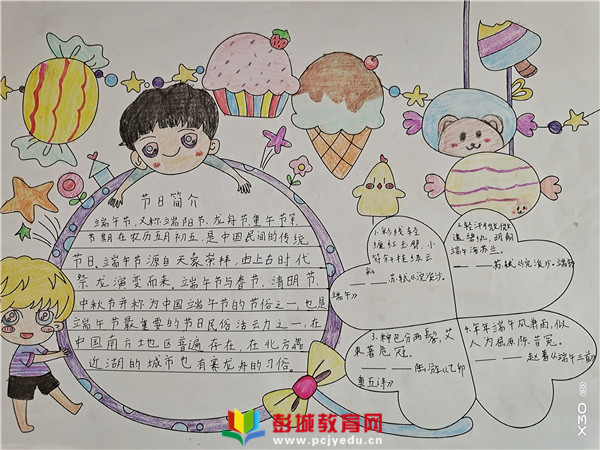 节日简介
端午节,又称端阳节,龙舟节,重午节等
节期在农历五月初五,是中国民间的传统
节日,端午节源自天象崇拜,由上古时代
祭龙演变而来,端午节与春节、清明节、
中秋节并称为中国端午节的节俗之一,也是
端午节最重要的节日民俗活云力之一,在
中国南方地区普遍存在,在北方靠
近湖的城市也有赛龙舟的习俗。
1.彩线轻
缠红玉臂,小
符斜挂绿云
——苏轼《浣溪沙
端午》
2.轻汗微微
透碧纨,明朝
端午浴芳兰。
——苏轼《浣溪沙·端午
3.粽包分两髻,艾
束著危冠。
——陆游《乙卯
重五诗》
4.年年端午风雨,似
人为屈原陈昔冤。
——赵蕃《端午三首
彭城教育网
www.pcjyedu.cn
X30